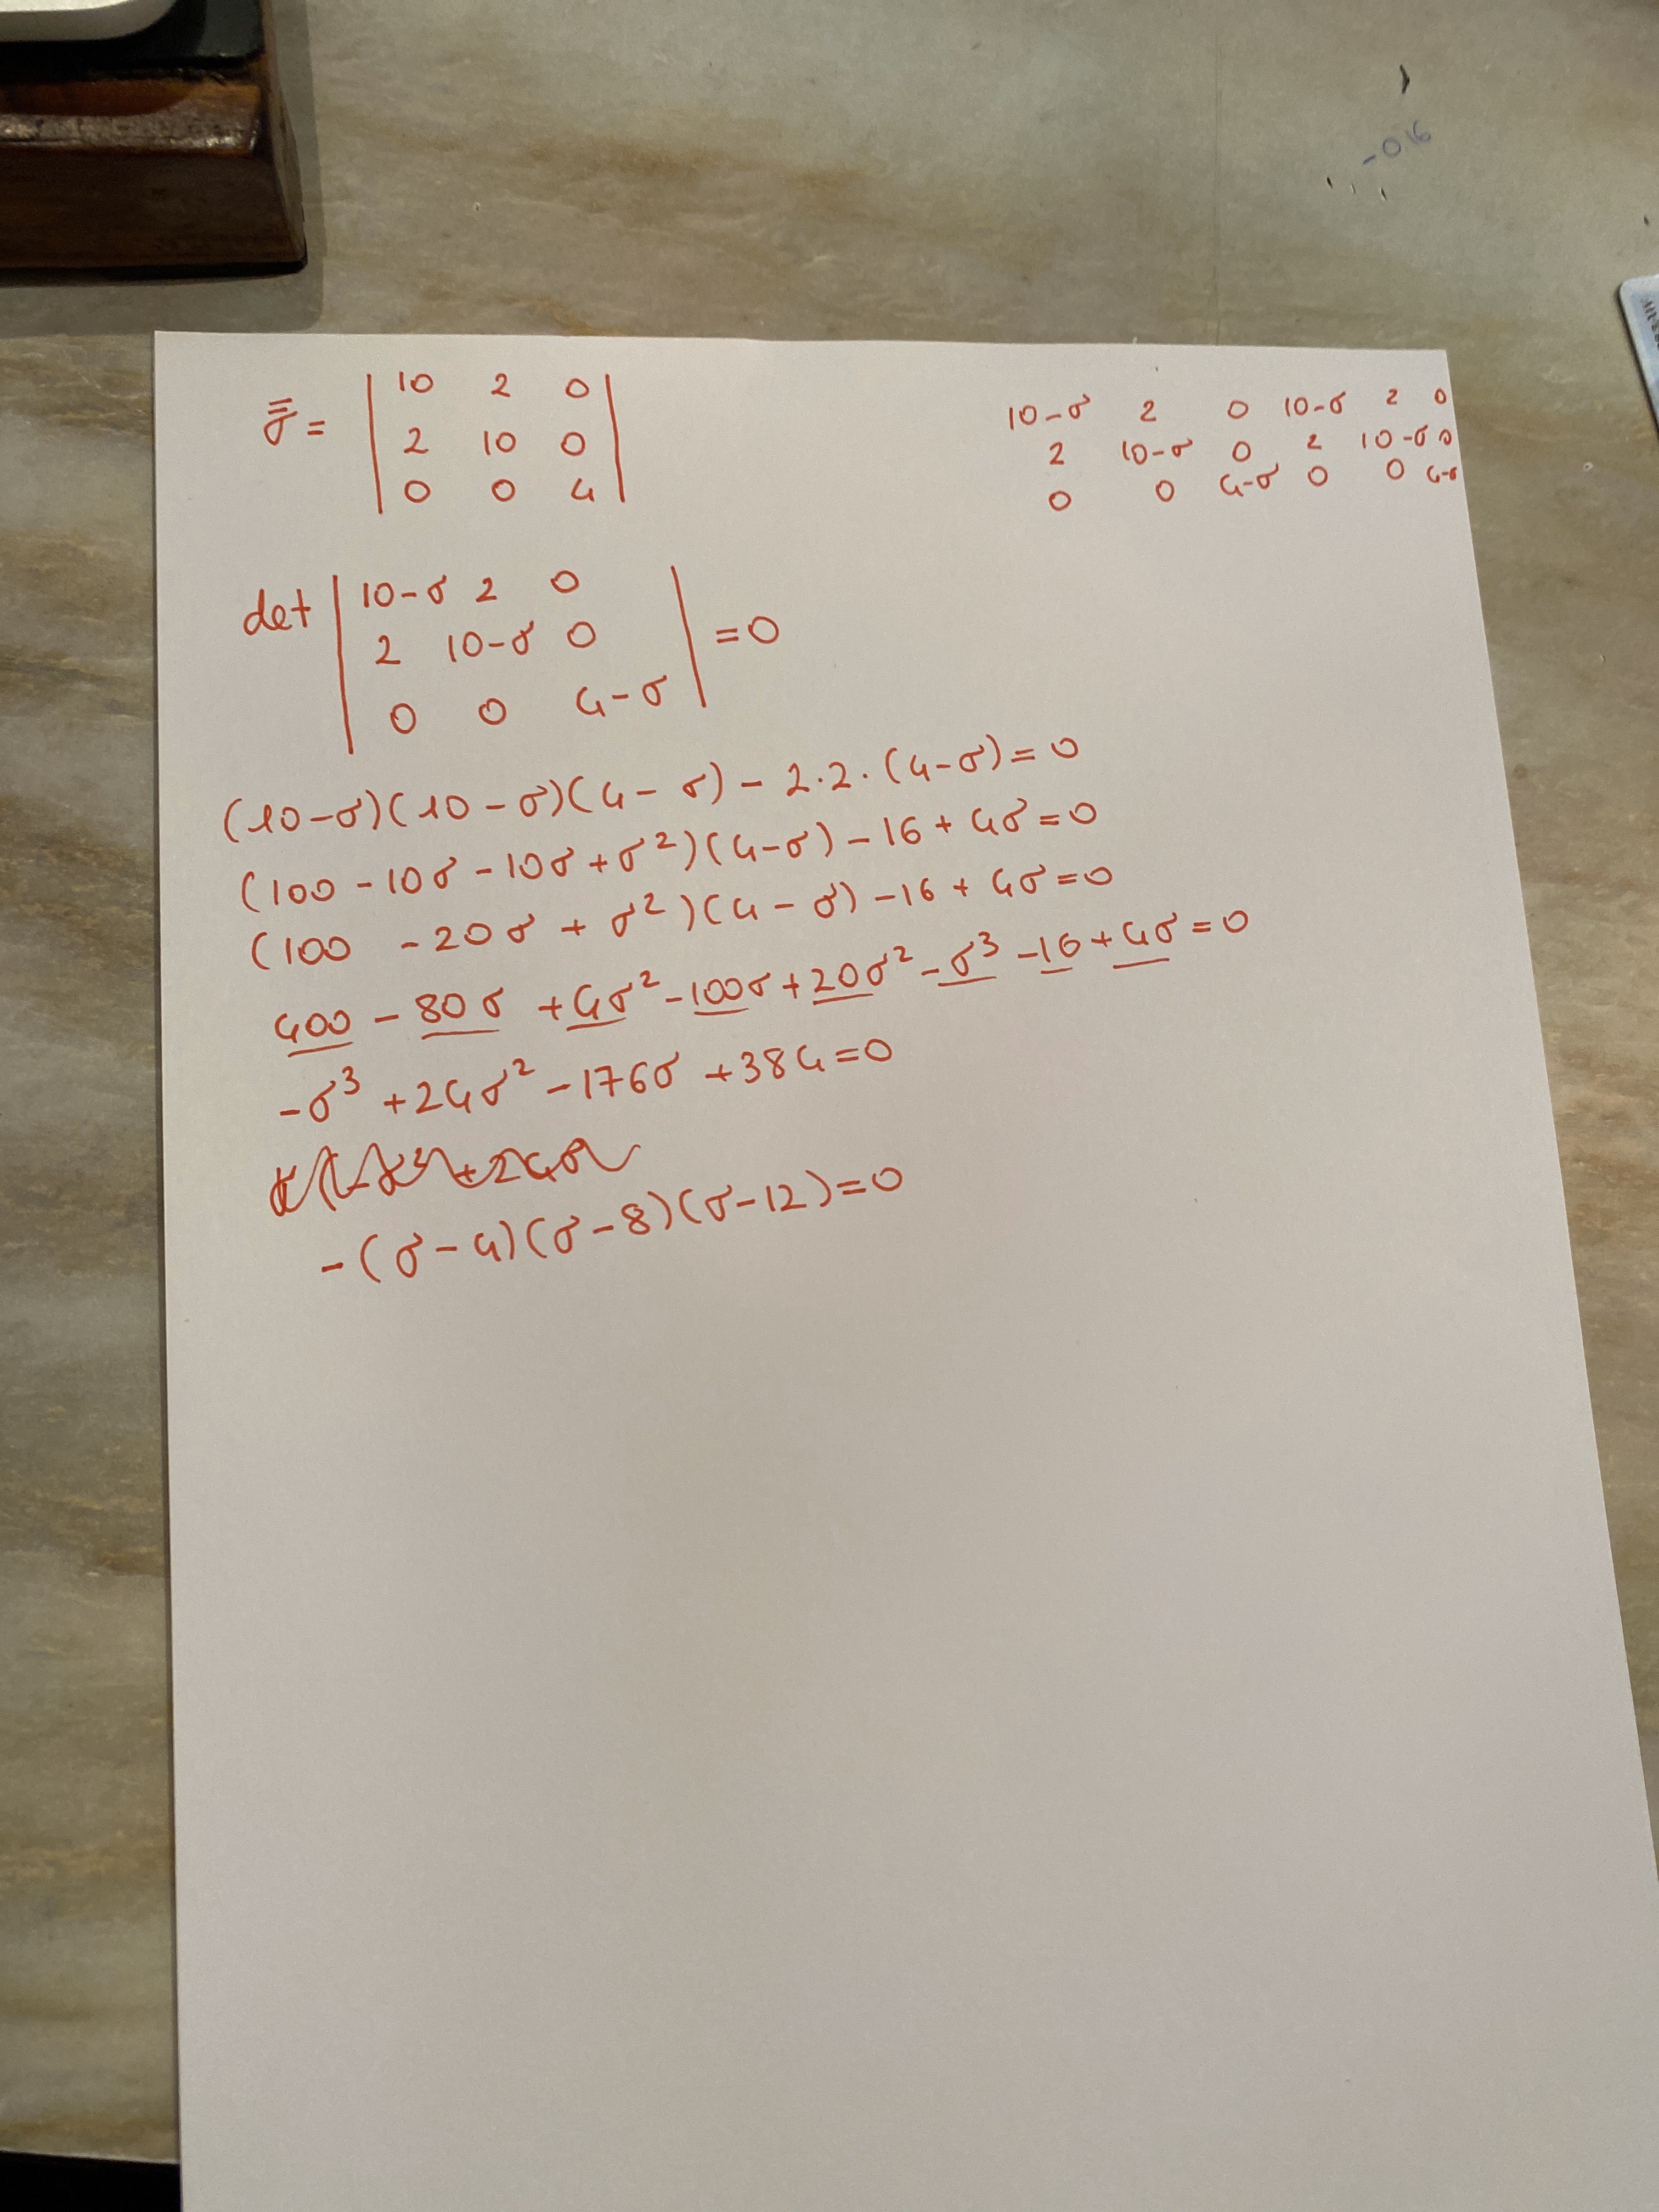 -016
σ̿ = | 10 2 0 |
| 2 10 0 |
| 0 0 4 |
10-σ 2 0 10-σ 2 0
2 10-σ 0 2 10-σ 0
0 0 4-σ 0 0 4-σ
det | 10-σ 2 0 |
| 2 10-σ 0 | =0
| 0 0 4-σ |
(10-σ)(10-σ)(4-σ) - 2.2.(4-σ)=0
(100 - 10σ - 10σ + σ²)(4-σ) - 16 + 4σ=0
(100 - 20σ + σ²)(4-σ) - 16 + 4σ=0
400 - 80σ + 4σ² - 100σ + 20σ² - σ³ - 16 + 4σ = 0
-σ³ + 24σ² - 176σ + 384=0
-(σ-4)(σ-8)(σ-12)=0